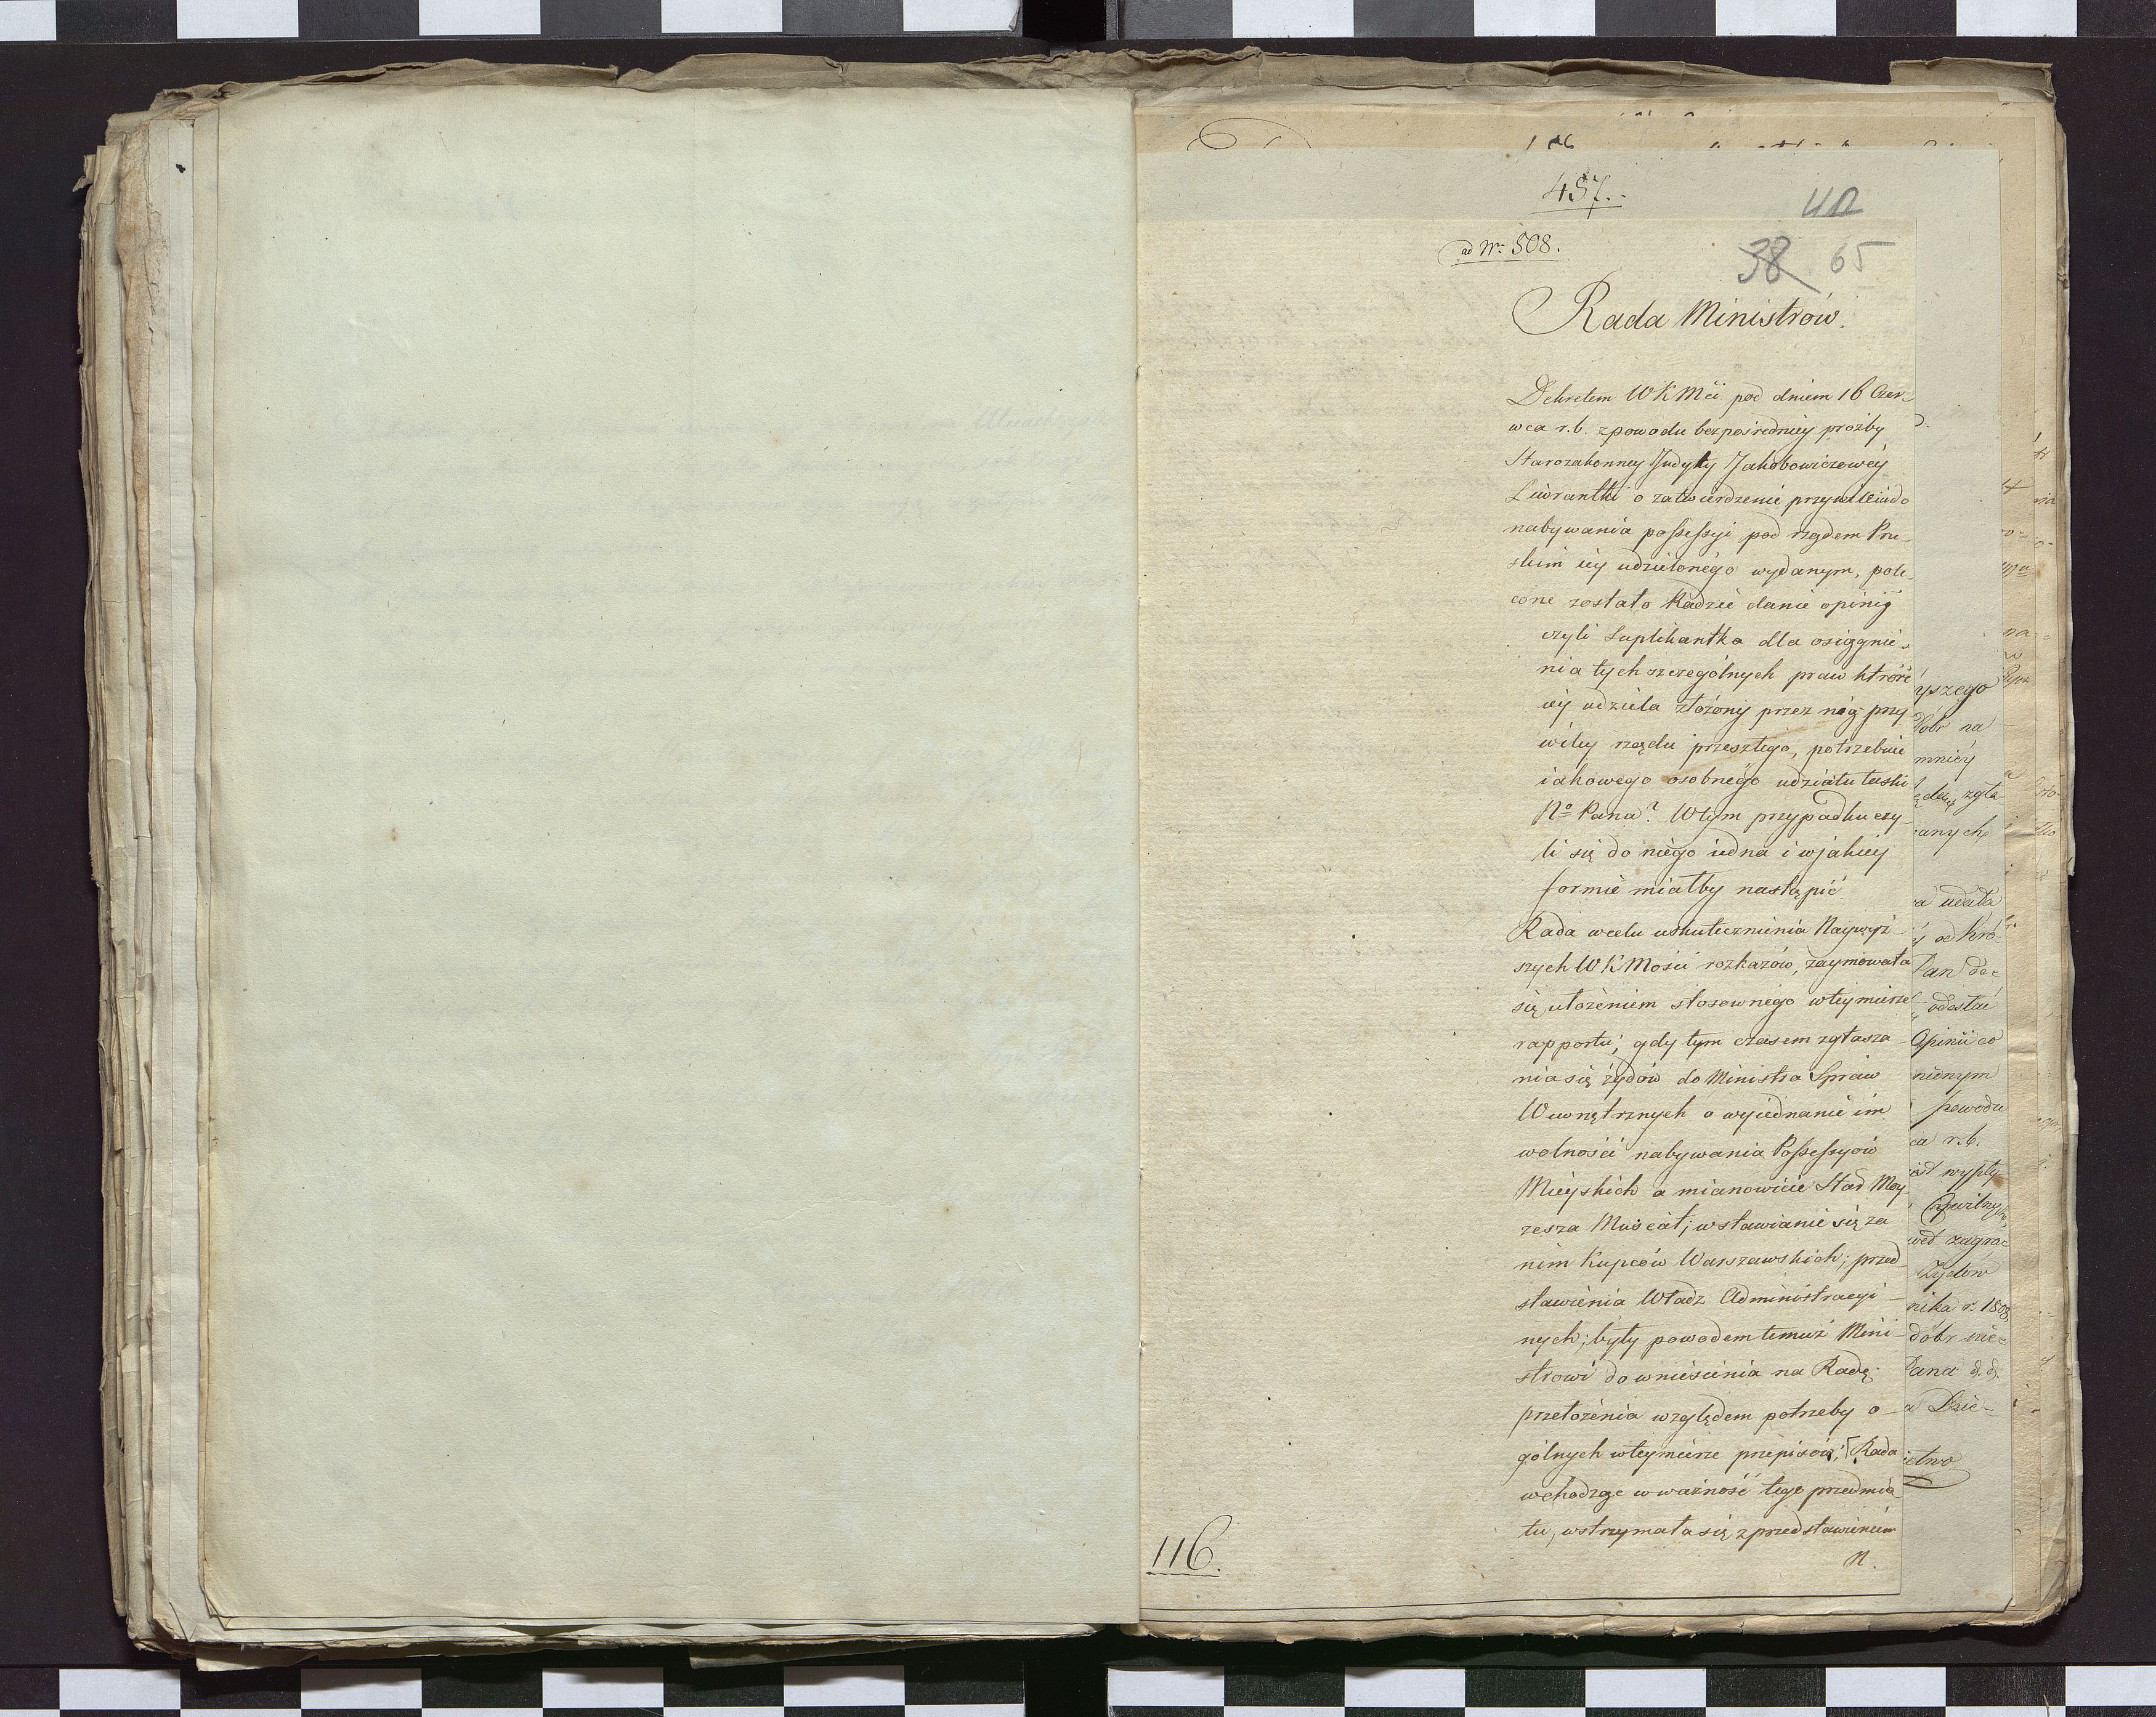 457.
42
ad Nr: 508.
38 65
Rada Ministrów.
Dekretem WKMci pod dniem 16 Czer-
wca r.b. zpowodu bezpośredniey prozby
Starozakonney Judyty Jakobowiczowéy
Liwrantki o zatwierdzenie przywileiu do
nabywania possessyi pod rządem Pru-
skim iéy udzielonégo wydanym, pole-
cone zostało Radzie danie opinii
czyli Suplikantka dla osiągnie-
nia tych szczególnych praw które
iéy udziela złożony przez nią przy-
wiléy rządu przeszłego, potrzebuie
iakowego osobnégo udziału łaski
No Pana? Wtym przypadku czy-
li się do niégo iedna i wjakiéy
formie miałby nastąpić
Rada wcelu uskutecznienia Naywyż-
szych WKMości rozkazów, zaymowała
się ułożeniem stosownégo wtéy mierze
rapportu, gdy tym czasem zgłasza-
nia się żydów do Ministra Spraw
Wewnętrznych o wyiednanie im
wolności nabywania Possessyów
Mieyskich a mianowicie Stad Moy-
zesza Muscat; wstawianie się za
nim Kupców Warszawskich; przed-
stawienia Władz Administracyi-
nych; były powodem temuż Mini-
strowi do wniesienia na Radę
przełożenia względem potrzeby o-
gólnych wtéymierze przepisów; Rada
wchodząc w ważność tego przedmio-
tu, wstrzymała się z przedstawieniem
N.
116.
yszego
dóbr na
mniéy
zgła
anych
a udała
od Kró-
Pan de-
odesłać
Opinii co
nionym
powodu
ca r.b.
wypły-
Cywilny
zagra-
Żydów
nika r. 1808
dóbr nie-
Pana d. d.
a Dzie-
ictwo